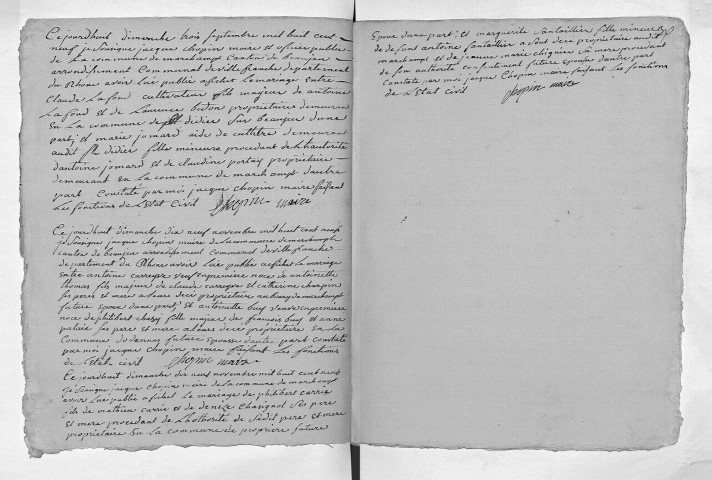 Cejourdhuit dimanche trois septembre mil huit cent
neuf je Sousigne jacque chopin maire et oficier publie
de La commune de marchampt Canton de beaujeu
arrondissement Communal de villefranche departement
du Rhone avoir Lue publié afichet Lemariage entre
Claude Lafond cultivateur fils majeur de antoine
La fond et de Laurence buton proprietaire demeurant
en La commune de St didier Sur beaujeu dune
part; et marie jomard aide de culture demeurant
audit St didier fille mineure procedant de Lhautorité
dantoine jomard et de claudine portay proprietaire
demeurant en La commune de marchampt dautre
part Constaté par moi jacque chopin maire faisant
Les fonctions de Letat Civil Chopin maire
Ce jourdhuit dimanche dix neuf novembre mil huit cent neuf
je Sousigne jacque chopin maire de La commune de marchampt
canton de beaujeu arrondissement communal de villefranche
departement du Rhone avoir Lue publié afichet Le mariage
entre antoine carreyre veuf enpremiere noce de antoinette
thomas fils majeur de claude carreyre et catherine
Ses peres et mere aleurs decé proprietaire au bourg de marchampt
future epoux dune part; et antoinette buy veuve enpremiere
noce de philibert fille majeur de françois buy et anne
palaie Ses pere et mere aleurs decé proprietaire en La
Commune future epousse dautre part constaté
par moi jacque chopin maire faisant Les fonctions
de Letat civil Chopin maire
Ce jourdhuit dimanche dix neuf novembre mil huit cent neuf
je Sousigne jacque chopin maire de La commune de marchampt
avoir Lue publié afichet Le mariage de philibert carrie
fils de mathieu carrie et de denize Chasignol Ses pere
et mere procedant de Lhothorité de Sedit pere et mere
proprietaire en La commune de propriere future
Epoux dune part; et marguerite Santaillier fille mineure
de defunt antoine Santaillier a Son decé proprietaire audit
marchampt et de jeanne marie chignier Sa mere procedant
de Son authorité consentement future epouse dautre part
Constaté par moi jacque Chopin maire faisant Les fonctions
de Letat Civil Chopin maire